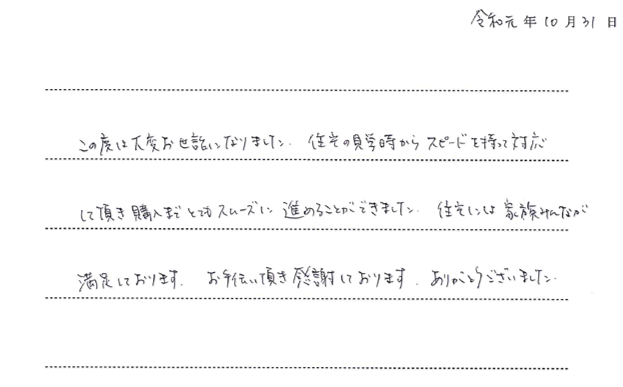 令和元年10月31日
この度は大変お世話になりました. 住宅の見学時からスピードを持って対応
して頂き購入までとてもスムーズに進めることができました. 住宅には家族みんなが
満足しております. お手伝い頂き感謝しております. ありがとうございました.